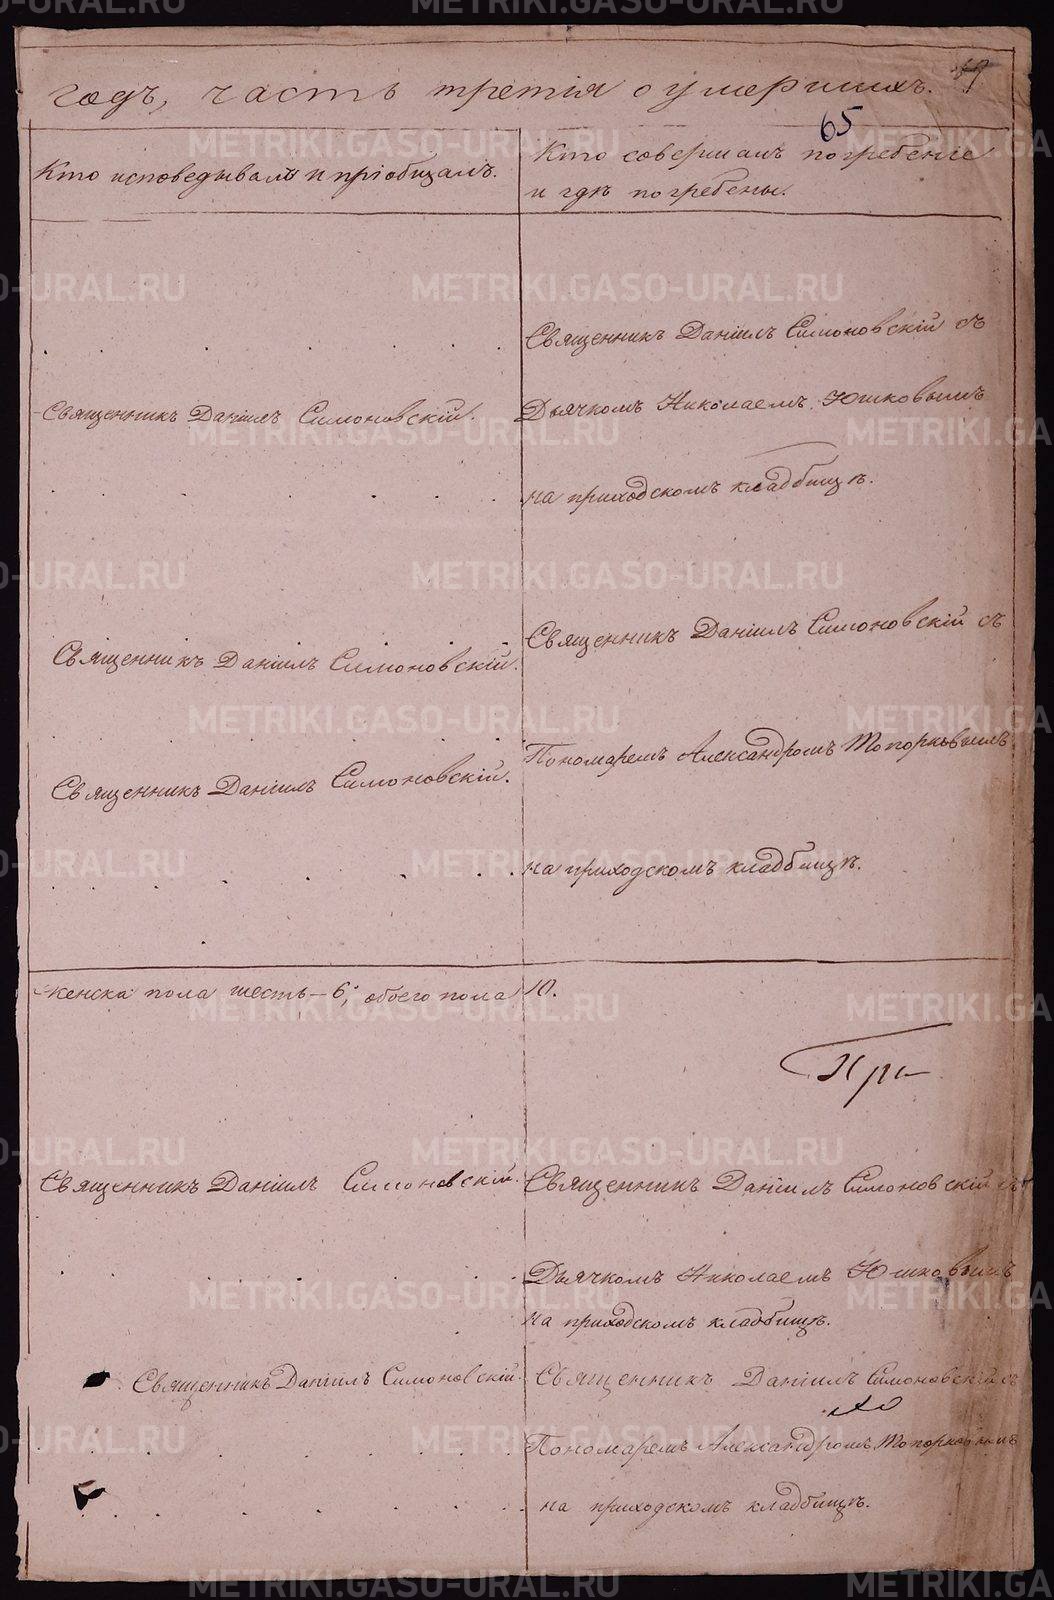 годъ, часть третія о умершихъ.
65
Кто исповедывалъ и пріобщалъ.
Кто совершалъ погребеніе
и гдѣ погребены.
Священникъ Даніилъ Симоновскій съ
Священникъ Даніилъ Симоновскій.
Дьячкомъ Николаемъ Юшковымъ
на приходскомъ кладбищѣ.
Священникъ Даніилъ Симоновскій съ
Священникъ Даніилъ Симоновскій.
Пономаремъ Александромъ Топорковымъ
Священникъ Даніилъ Симоновскій.
на приходскомъ кладбищѣ.
женска пола шесть – 6, обоего пола 10.
При
Священникъ Даніилъ Симоновскій.
Священникъ Даніилъ Симоновскій съ
Дьячкомъ Николаемъ Юшковымъ
на приходскомъ кладбищѣ.
Священникъ Даніилъ Симоновскій.
Священникъ Даніилъ Симоновскій съ
Пономаремъ Александромъ Топорковымъ
на приходскомъ кладбищѣ.
METRIKI.GASO-URAL.RU